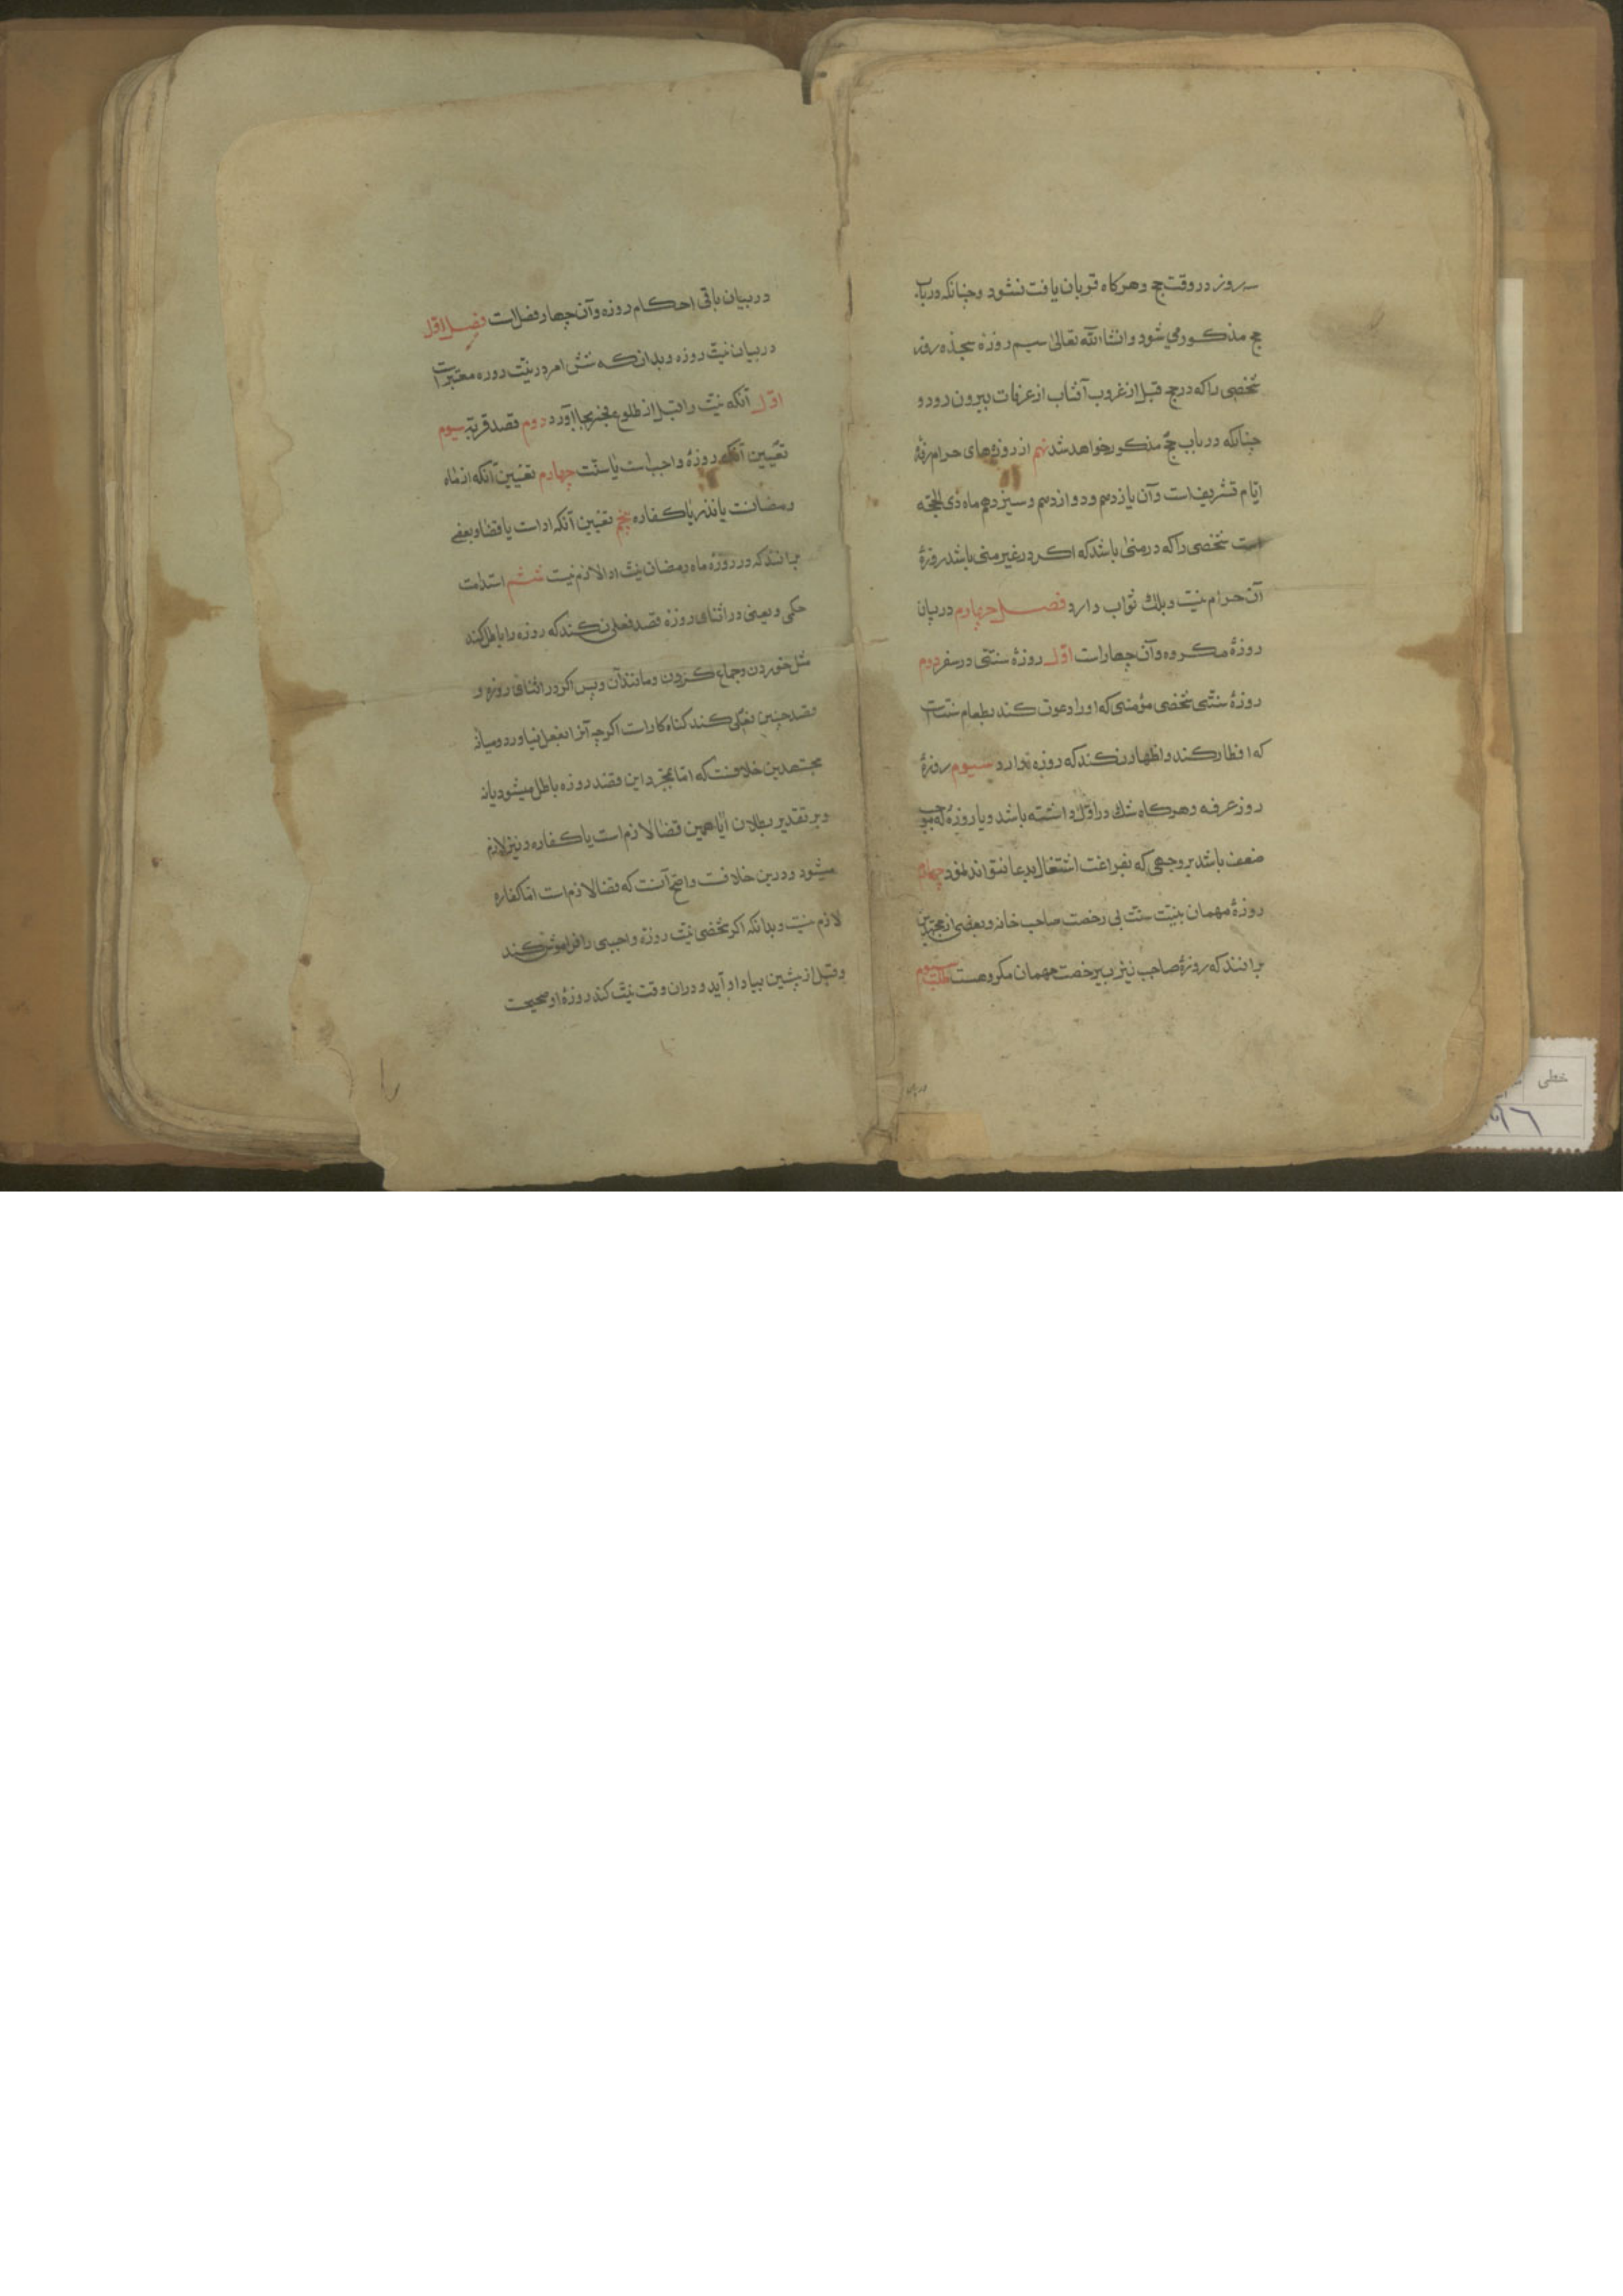 سه روز در وقت حج و هرکاه قربان یافت نشود و چنانکه در باب
حج مذکور می شود و انشاالله تعالی سیم روزهٔ هجده روز
شخصی را که در حج قبل از غروب آفتاب از عرفات بیرون رود و
چنانکه در باب حج مذکور خواهد شد نهم از روزهای حرام روزهٔ
ایام تشریف است و آن یازدهم و دوازدهم و سیزدهم ماه ذی الحجه
است شخصی را که در منی باشد که اکر در غیر منی باشد روزهٔ
آن حرام نیست و بلک ثواب دارد فصل چهارم در بیان
روزهٔ مکروه و آن چهار است اول روزهٔ سنتی در سفر دوم
روزهٔ سنتی شخصی مؤمنی که او را دعوت کند بطعام سنت است
که افطار کند و اظهار نکند که روزه دارد سیوم روزهٔ
روز عرفه و هرکاه شک در اول داشته باشد و یا روزه که موجب
ضعف باشد بر وجهی که بفراغت اشتغال بدعا نتواند نمود چهارم
روزهٔ مهمان بنیت سنت بی رخصت صاحب خانه و بعضی از مجتهدین
برانند که روزهٔ صاحب نیز بیرخصت مهمان مکروهست مطلب سیوم
در بیان
در بیان باقی احکام روزه و آن چهار فصل است فصل اول
در بیان نیت روزه و بدانکه شش امر در نیت روزه معتبر است
اول آنکه نیت را قبل از طلوع فجر بجا آورد دوم قصد قربة سیوم
تعیین آنکه روزهٔ واجب است یا سنت چهارم تعیین آنکه از ماه
رمضانست یا نذر یا کفاره پنجم تعیین آنکه ادات یا قضا و بعضی
برانند که در روزهٔ ماه رمضان نیت ادا لازم نیست ششم استدامت
حکمی و یعنی در اثنای روزه قصد فعلی نکند که روزه را باطل کند
مثل خوردن و جماع کردن و مانند آن و پس اکر در اثنای روزه و
قصد چنین فعلی کند کناه کار است اکرچه آنرا بفعل نیاورد و میانهٔ
مجتهدین خلافست که اما بمجرد این قصد روزه باطل میشود یا نه
و بر تقدیر بطلان آیا همین قضا لازم است یا کفاره و نیز لازم
میشود و درین خلافست و اصح آنست که قضا لازم است اما کفاره
لازم نیست و بدانکه اکر شخصی نیت روزهٔ واجبی را فراموش کند
و قبل از پیشین بیاد او آید و دران وقت نیت کند روزهٔ او صحیحست
خطی